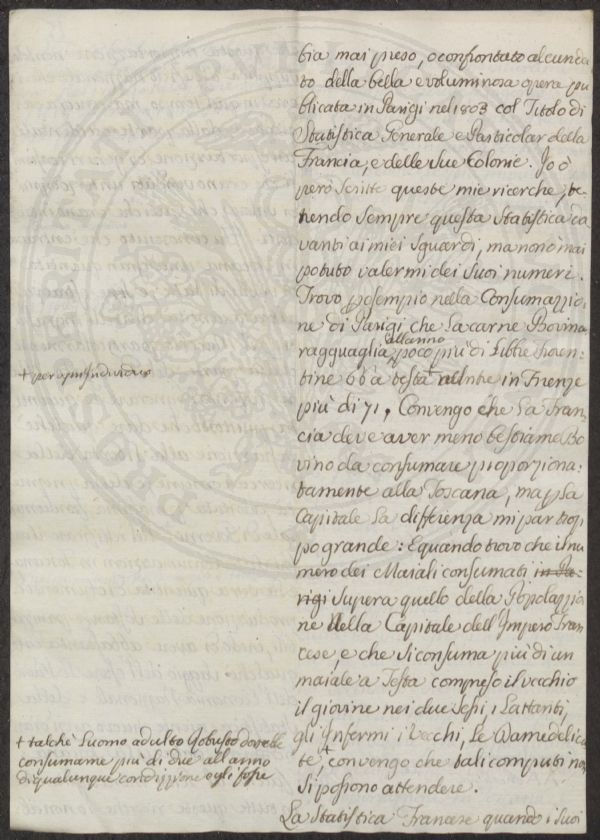 bia mai preso, o confrontato alcun da
to della bella e voluminosa opera pu
blicata in Parigi nel 1803 col Titolo di
Statistica Generale e Particolar della
Francia, e delle sue Colonie. Io ò
però scritte queste mie ricerche, te
nendo sempre questa Statistica da
vanti ai miei sguardi, ma non ò mai
potuto valermi dei suoi numeri.
Trovo p esempio nella Consumazzio
ne di Parigi che la carne Bovina
ragguaglia poco più di Libbre Fioren
all anno
tine 66 a testa + all'ntre in Firenze
+ per ogni individuo
più di 71, Convengo che la Fran
cia deve aver meno besoiame Bo
vino da consumare proporziona:
tamente alla Toscana, ma p la
Capitale la differenza mi par trop
po grande: E quando trovo che il nu
mero dei Maiali consumati in Pa:
rigi supera quello della Popolazzio
ne della Capitale dell'Impero Fran
cese, e che si consuma più di un
maiale a Testa compreso il vecchio
il giovine nei due sessi, i Lattanti,
gli Infermi i Vecchi, le Dame delica
te, + convengo che tali computi non
si possono attendere.
+ talchè l'uomo adulto robusto dovrebbe
consumarne più di due all anno
di qualunque condizzione egli fosse
La Statistica Francese quando i suoi